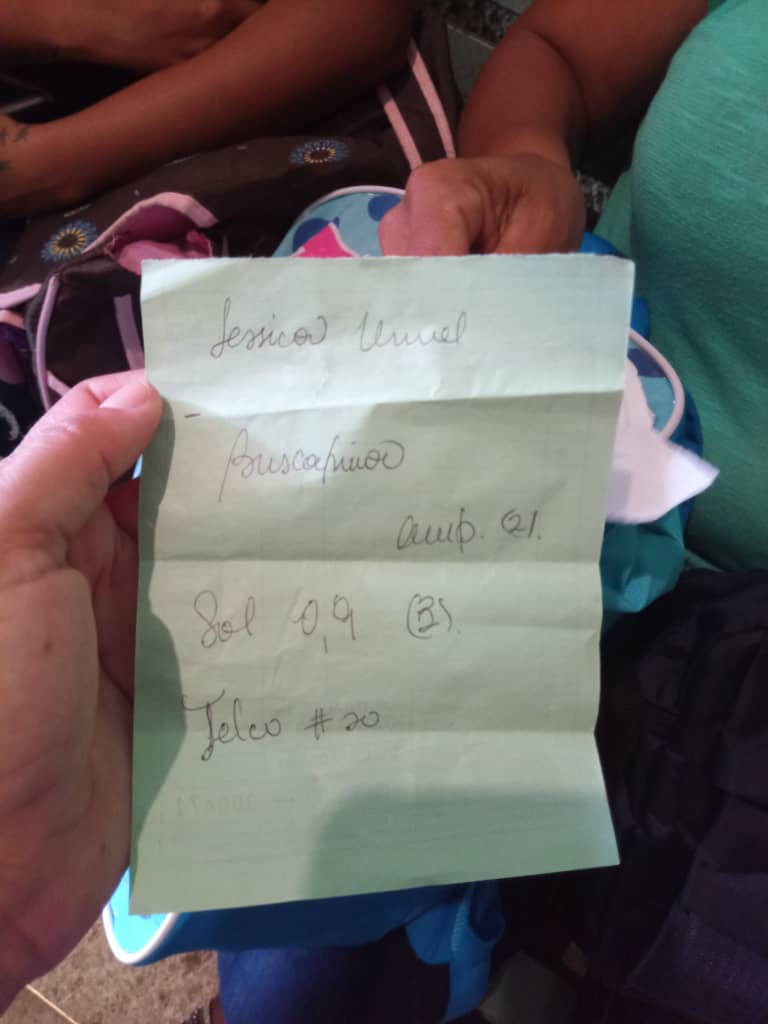 Jessica
Buscapina
amp. (2).
Sol 0,9 (3).
Jelco # 20